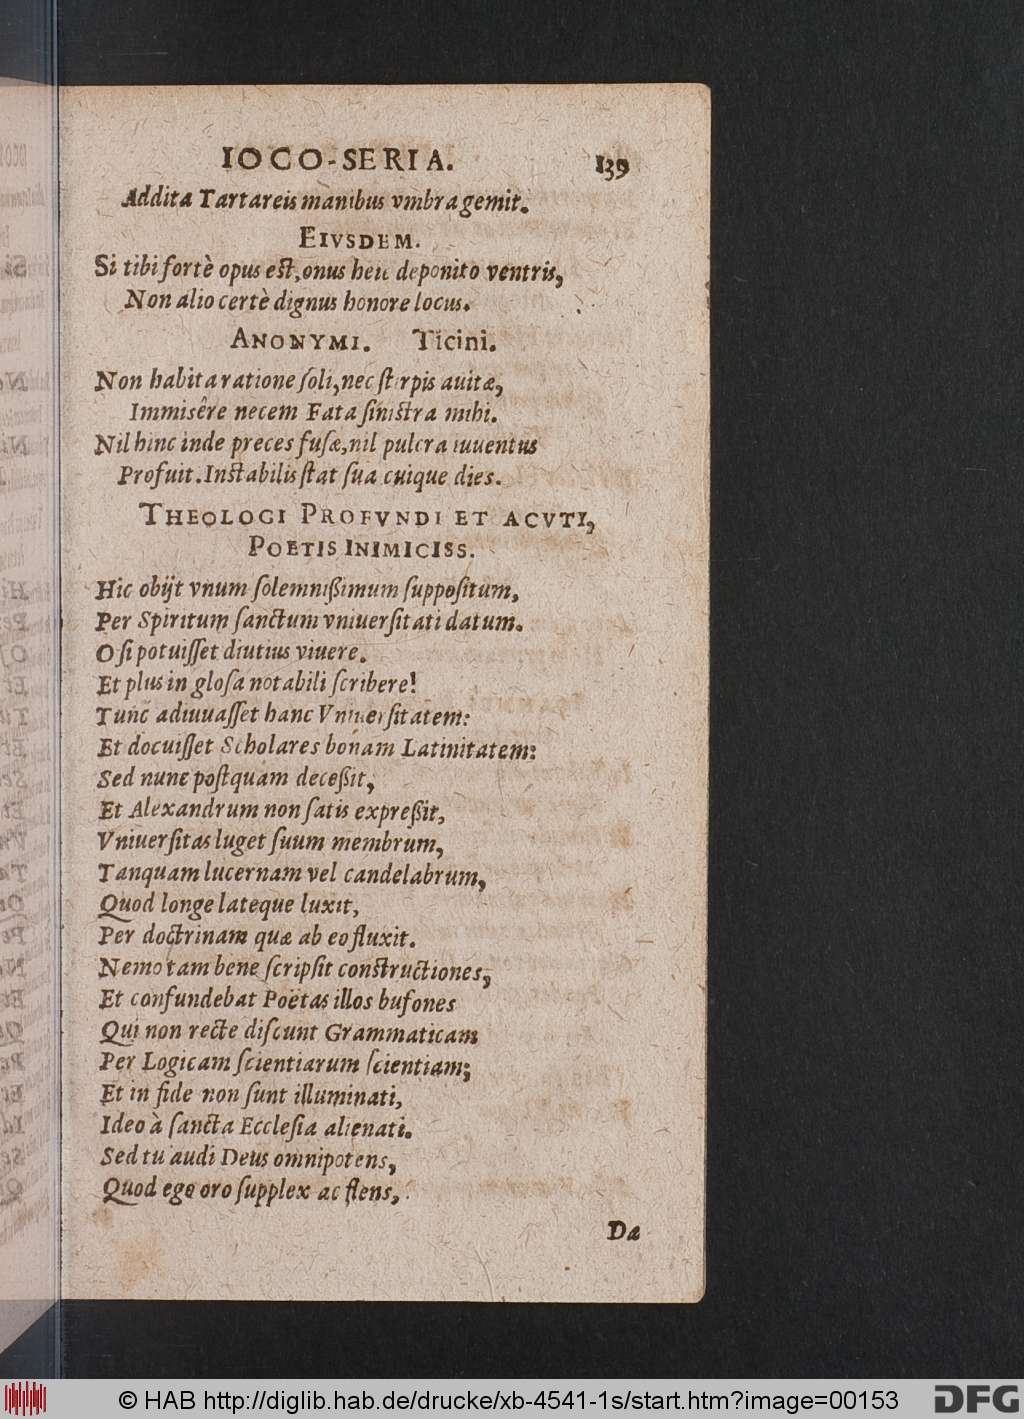 IOCO-SERIA. 139
Addita Tartareis manibus vmbra gemit.
EIVSDEM.
Si tibi fortè opus est, onus heu deponito ventris,
Non alio certè dignus honore locus.
ANONYMI. Ticini.
Non habita ratione soli, nec stirpis auitæ,
Immisêre necem Fata sinistra mihi.
Nil hinc inde preces fusæ, nil pulcra iuuentus
Profuit. Instabilis stat sua cuique dies.
THEOLOGI PROFVNDI ET ACVTI,
POETIS INIMICISS.
Hic obijt vnum solemnißimum suppositum,
Per Spiritum sanctum vniuersitati datum.
O si potuisset diutius viuere.
Et plus in glosa notabili scribere!
Tunc adiuuasset hanc Vniuersitatem:
Et docuisset Scholares bonam Latinitatem:
Sed nunc postquam deceßit,
Et Alexandrum non satis expreßit,
Vniuersitas luget suum membrum,
Tanquam lucernam vel candelabrum,
Quod longe lateque luxit,
Per doctrinam quæ ab eo fluxit.
Nemo tam bene scripsit constructiones,
Et confundebat Poëtas illos bufones
Qui non recte discunt Grammaticam
Per Logicam scientiarum scientiam;
Et in fide non sunt illuminati,
Ideo à sancta Ecclesia alienati.
Sed tu audi Deus omnipotens,
Quod ego oro supplex ac flens,
Da
© HAB http://diglib.hab.de/drucke/xb-4541-1s/start.htm?image=00153 DFG